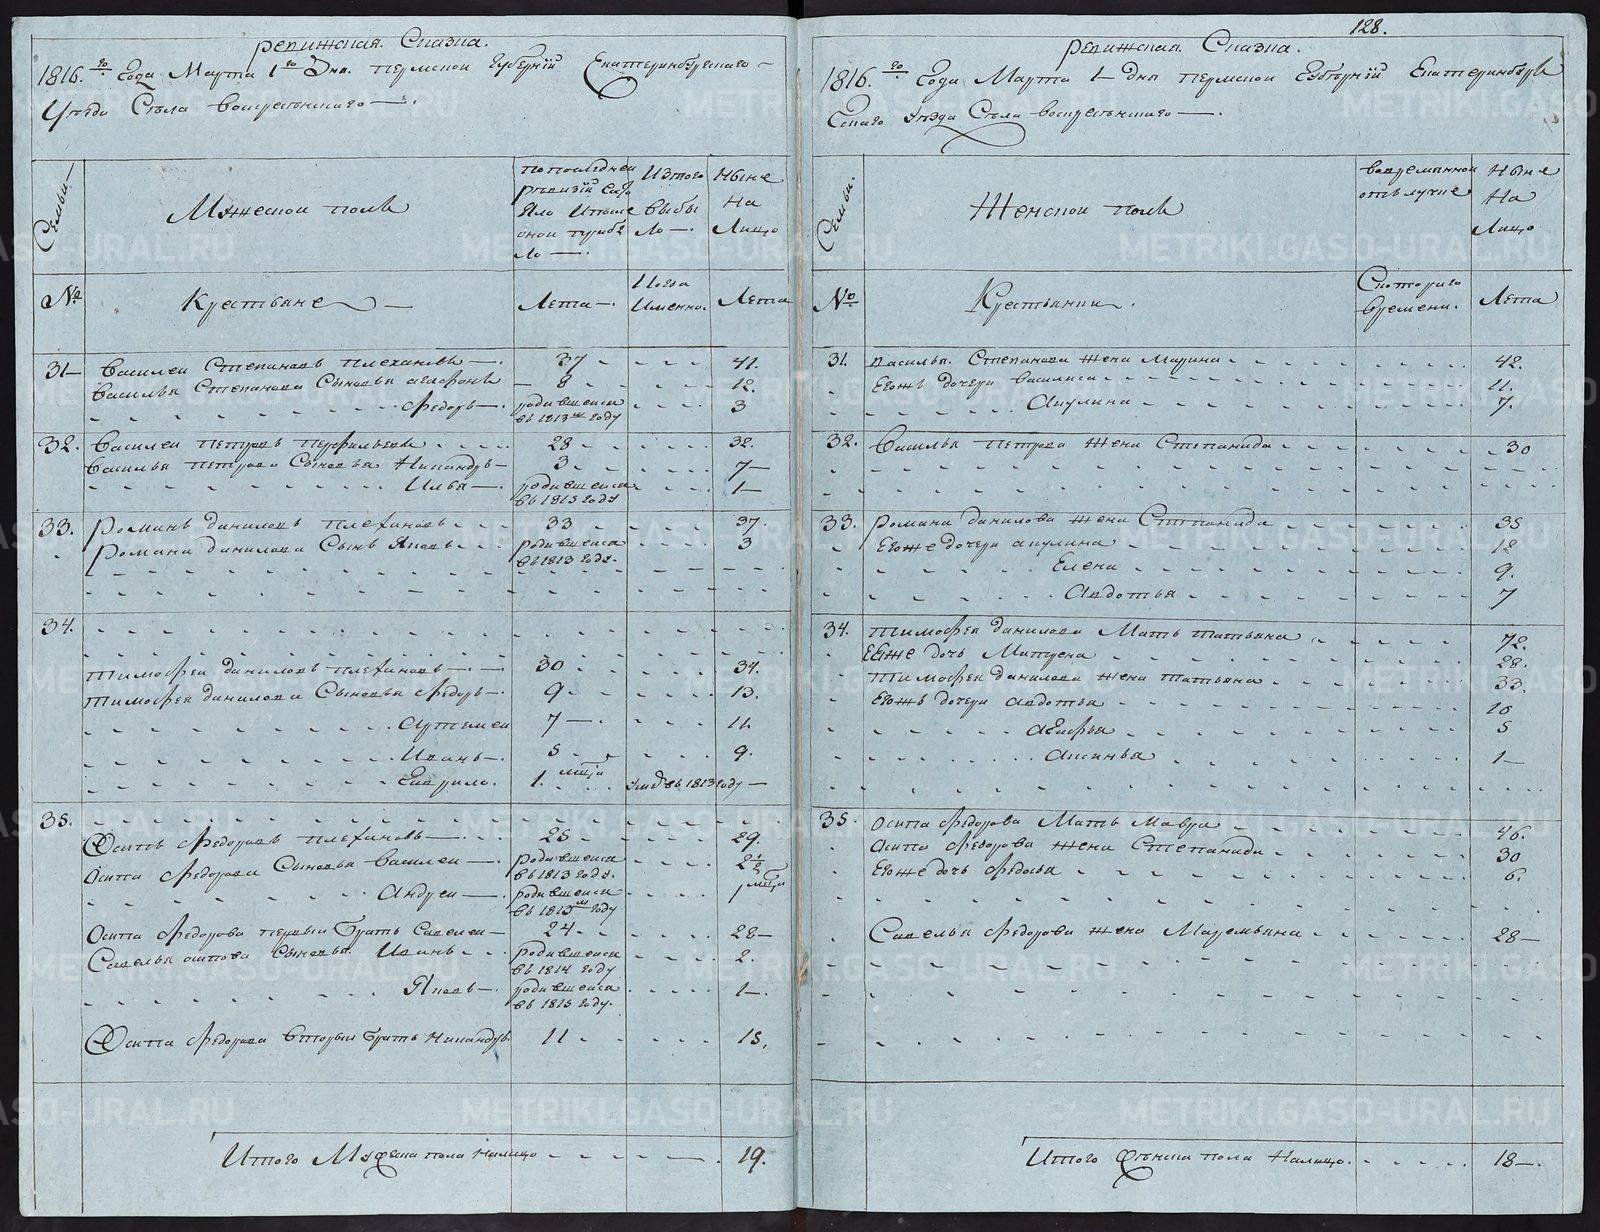 128.
Ревижская Сказка.
1816.го Года Марта 1го Дня. Пермской Губернïи Екатеринбургскаго
Уезда Села Воскресенскаго
Семьи
Мужескои полъ
по последней
ревизïи состо
яло и после
оной прибы
ло
Изтого
выбы
ло
Ныне
На
Лицо
№
Крестьяне
Лета
Когда
Именно.
Лета
31 Василеи Степановъ Плехановъ 37 41.
Василья Степанова Сыновья Агафонъ 8 12.
Федоръ родившеися въ 1813м году 3
32. Василеи Петровъ Перфильевъ 28 32.
Василья Петрова Сыновья Никандръ 3 7
Илья родившеися въ 1815 году 1
33. Романъ Даниловъ Плехановъ 33 37.
Романа Данилова Сынъ Яковъ родившеися въ 1813 году. 3
34.
Тимофеи Даниловъ Плехановъ 30 34.
Тимофея Данилова Сыновья Федоръ 9 13.
Артемеи 7 11.
Иванъ 5 9.
Гаврило. 1. умре въ 1813 году
35.
Осипъ Федоровъ Плехановъ 25 29.
Осипа Федорова Сыновья Василеи родившеися въ 1813 году. 2½
Андреи родившеися въ 1815м году
Осипа Федорова первыи братъ Савелеи 24 28
Савелья Осипова Сыновья Иванъ родившеися въ 1814 году 2.
Яковъ родившеися въ 1815 году. 1
Осипа Федорова вторыи братъ Никандръ 11 15.
Итого Мужеска пола налицо 19.
Ревижская Сказка.
1816.го Года Марта 1 дня Пермской Губернïи Екатеринбург
Скаго уезда Села Воскресенскаго
Семьи.
Женскои полъ
вовременной
отълучке
Ныне
На
Лицо
№
Крестьянки.
Скоторого
времени.
Лета
31. Василья Степанова жена Марина 42.
Евожъ дочери Василиса 11.
Акулина 7.
32. Василья Петрова жена Степанида 30
33. Романа Данилова жена Степанида 35
Евоже дочери Акулина 12
Елена 9.
Авдотья 7
34. Тимофея Данилова Мать Татьяна 72.
Ееже дочь Матрена 28.
Тимофея Данилова жена Татьяна 33.
Евожъ дочери Авдотья 10
Агафья 5
Аксинья 1
35. Осипа Федорова Мать Мавра 46.
Осипа Федорова жена Степанида 30
Евоже дочь Федосья 6.
Савелья Федорова жена Маремьяна 28
Итого Женска пола Налицо. 18.
METRIKI.GASO-URAL.RU